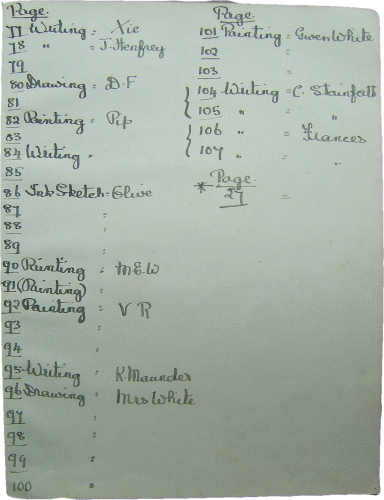 Page.
77 Writing = Xie
78 " = J. Henfrey
79
80 Drawing = D.F
81
82 Painting = Pip
83
84 Writing "
85
86 Ink Sketch = Olive
87 "
88 "
89 "
90 Painting " M.E.W
91 (Painting) "
92 Painting = V R
93 "
94 "
95 - Writing " K. Maunder
96 Drawing " Mrs White
97 "
98 "
99 "
100 "
Page.
101 Painting = Gwen White
102 =
103 =
104 Writing = C. Stainforth
105 " = "
106 " = Frances
107 " = "
Page.
* 27 =